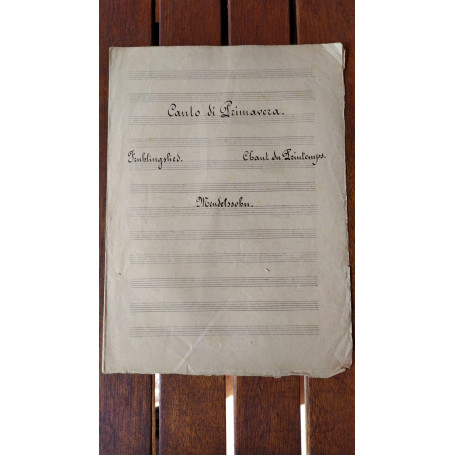 Canto di Primavera.
Fruhlingslied. Chant du Printemps.
Mendelssohn.